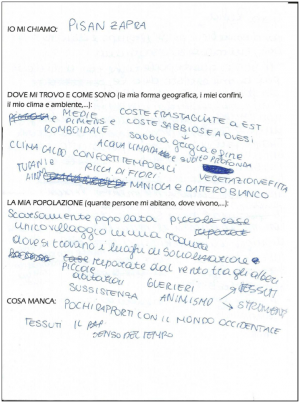 IO MI CHIAMO: PISAN ZAPRA
DOVE MI TROVO E COME SONO (la mia forma geografica, i miei confini,
il mio clima e ambiente,..):
MEDIE COSTE FRASTAGLIATE A EST
e DIMENS e COSTE SABBIOSE A OVEST
ROMBOIDALE sabbia grigia e fine
ACQUA LIMPIDA e PROFONDA
CLIMA CALDO CON FORTI TEMPORALI VEGETAZIONE FITTA
RICCA DI FIORI
MANIOCA e DATTERO BIANCO
LA MIA POPOLAZIONE (quante persone mi abitano, dove vivono,...):
Scarsamente popolata piccole case
unico villaggio in una radura riparate
dove si trovano i luoghi di socializzazione
case riparate dal vento tra gli alberi
PICCOLE
abitazioni GUERIERI TESSUTI
SUSSISTENZA ANIMISMO STRUMENTI
COSA MANCA: POCHI RAPPORTI CON IL MONDO OCCIDENTALE
TESSUTI IL
SENSO DEL TEMPO